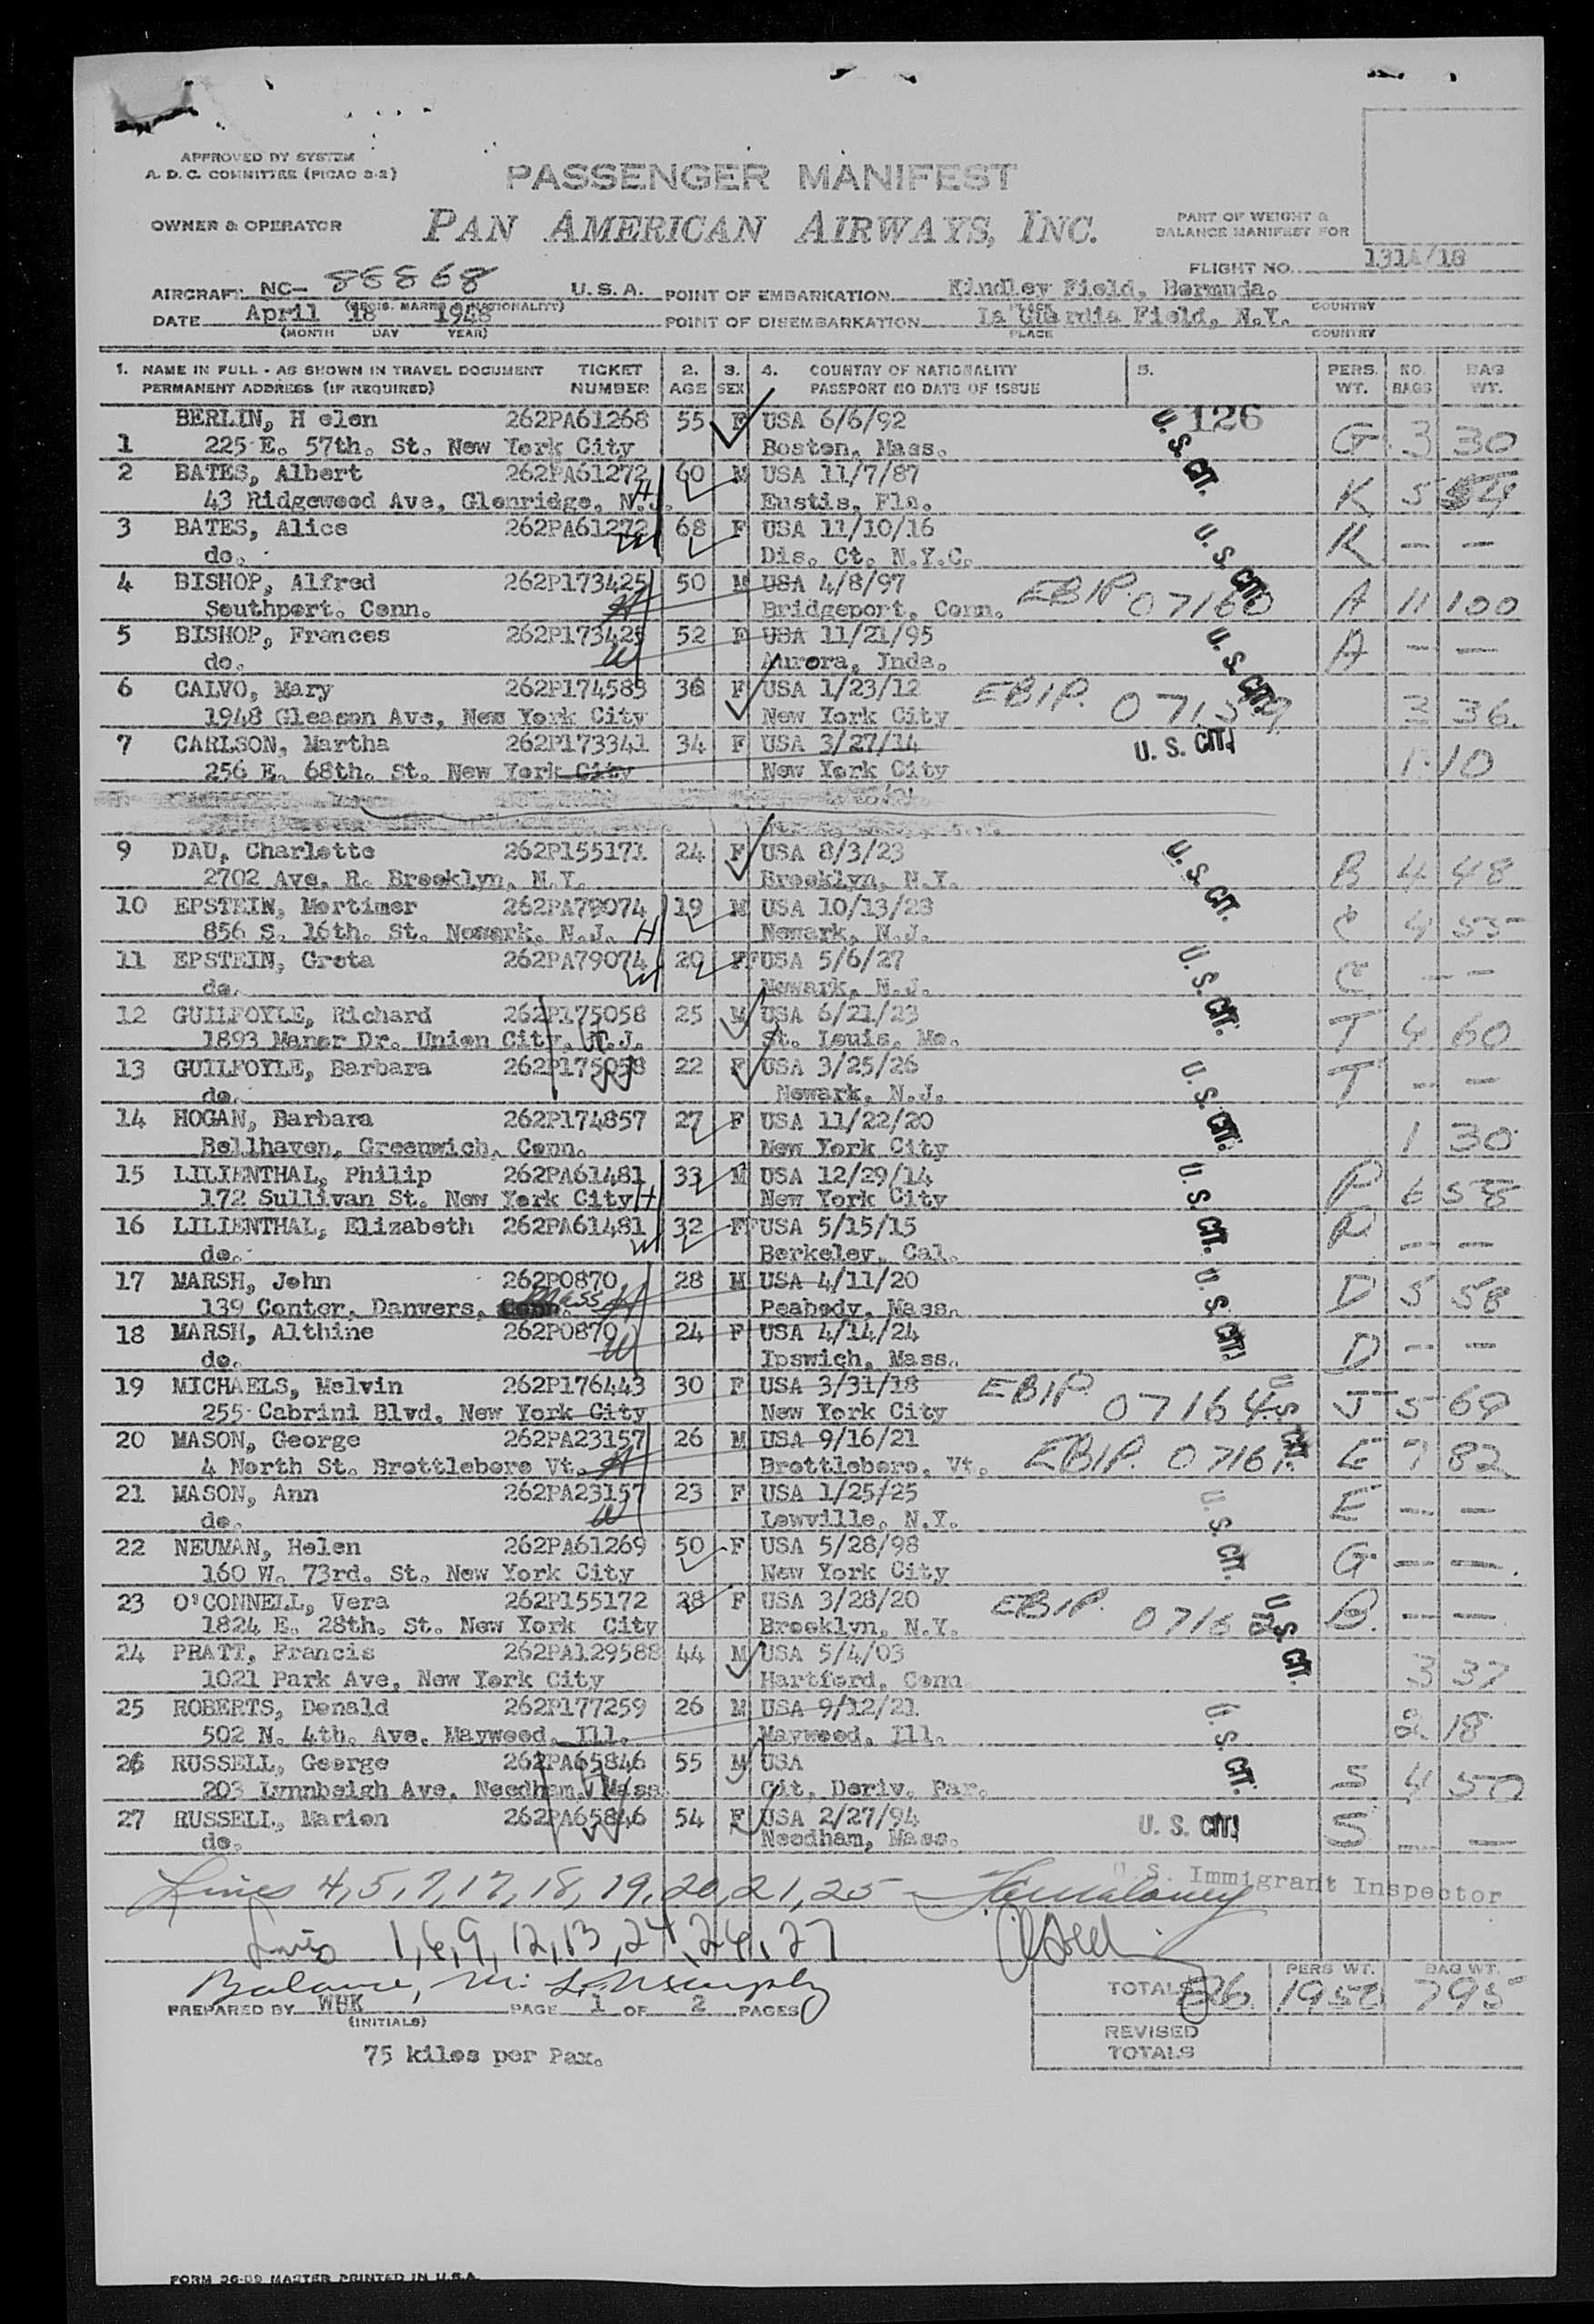 APPROVED BY SYSTEM
A. D. C. COMMITTEE (PICAO 3-2)
PASSENGER MANIFEST
OWNER & OPERATOR
PAN AMERICAN AIRWAYS, INC.
PART OF WEIGHT &
BALANCE MANIFEST FOR
FLIGHT NO. 131A/18
AIRCRAFT NC- 88868 U. S. A. POINT OF EMBARKATION Kindley Field, Bermuda.
(REGIS. MARKS & NATIONALITY) PLACE COUNTRY
DATE April 18 1948 POINT OF DISEMBARKATION La Guardia Field, N.Y.
(MONTH DAY YEAR) PLACE COUNTRY
1. NAME IN FULL - AS SHOWN IN TRAVEL DOCUMENT TICKET 2. 3. 4. COUNTRY OF NATIONALITY 5. PERS. NO. BAG
PERMANENT ADDRESS (IF REQUIRED) NUMBER AGE SEX PASSPORT NO DATE OF ISSUE WT. BAGS WT.
BERLIN, H elen 262PA61268 55 F USA 6/6/92 126
1 225 E. 57th. St. New York City Boston, Mass. U. S. CIT. G 3 30
2 BATES, Albert 262PA61272 60 M USA 11/7/87
43 Ridgewood Ave, Glenridge, N.J. H Eustis, Fla. K 5 54
3 BATES, Alice 262PA61272 68 F USA 11/10/16
do. W Dis. Ct. N.Y.C. U. S. CIT. K — —
4 BISHOP, Alfred 262P173425 50 M USA 4/8/97
Southport. Conn. H Bridgeport, Conn. EBIP. 07160 A 11 100
5 BISHOP, Frances 262P173425 52 F USA 11/21/95
do. W Aurora, Inda. U. S. CIT. A — —
6 CALVO, Mary 262P174583 36 F USA 1/23/12
1948 Gleason Ave, New York City New York City EBIP. 07159 3 36
7 CARLSON, Martha 262P173341 34 F USA 3/27/14 U. S. CIT.
256 E. 68th. St. New York City New York City 1 10
9 DAU, Charlotte 262P155171 24 F USA 8/3/23
2702 Ave. R. Brooklyn, N.Y. Brooklyn, N.Y. U. S. CIT. B 4 48
10 EPSTEIN, Mortimer 262PA79074 19 M USA 10/13/28
856 S. 16th. St. Newark, N.J. H Newark, N.J. C 4 55
11 EPSTEIN, Greta 262PA79074 20 F USA 5/6/27
do. W Newark, N.J. U. S. CIT. C — —
12 GUILFOYLE, Richard 262P175058 25 M USA 6/21/23
1893 Manor Dr. Union City, N.J. St. Louis, Mo. T 4 60
13 GUILFOYLE, Barbara 262P175058 22 F USA 3/25/26
do. W Newark, N.J. U. S. CIT. T — —
14 HOGAN, Barbara 262P174857 27 F USA 11/22/20
Bellhaven, Greenwich, Conn. New York City 1 30
15 LILIENTHAL, Philip 262PA61481 33 M USA 12/29/14
172 Sullivan St. New York City H New York City U. S. CIT. P 6 58
16 LILIENTHAL, Elizabeth 262PA61481 32 F USA 5/15/15
do. W Berkeley, Cal. P — —
17 MARSH, John 262P0870 28 M USA 4/11/20
139 Center, Danvers, Mass H Peabody, Mass. U. S. CIT. D 5 58
18 MARSH, Althine 262P0870 24 F USA 4/14/24
do. W Ipswich, Mass. D — —
19 MICHAELS, Melvin 262P176443 30 F USA 3/31/18
255 Cabrini Blvd, New York City New York City EBIP. 07164 U. S. CIT. J 5 69
20 MASON, George 262PA23157 26 M USA 9/16/21
4 North St. Brottleboro Vt. H Brottleboro, Vt. EBIP. 07161 E 7 82
21 MASON, Ann 262PA23157 23 F USA 1/25/25
do. W Lewville, N.Y. U. S. CIT. E — —
22 NEUMAN, Helen 262PA61269 50 F USA 5/28/98
160 W. 73rd. St. New York City New York City G — —
23 O'CONNELL, Vera 262P155172 28 F USA 3/28/20
1824 E. 28th. St. New York City Brooklyn, N.Y. EBIP. U. S. CIT. B. — —
24 PRATT, Francis 262PA129588 44 M USA 5/4/03
1021 Park Ave, New York City Hartford, Conn 3 37
25 ROBERTS, Donald 262P177259 26 M USA 9/12/21
502 N. 4th. Ave. Maywood, Ill. Maywood, Ill. U. S. CIT. 2 18
26 RUSSELL, George 262PA65846 55 M USA
203 Lynnbeigh Ave, Needham, Mass. Cit. Deriv. Par. S 4 50
27 RUSSELL, Marion 262PA65846 54 F USA 2/27/94 U. S. CIT.
do. W Needham, Mass. S — —
Lines 4, 5, 7, 17, 18, 19, 20, 21, 25 U. S. Immigrant Inspector
Lines 1, 6, 9, 12, 13, 24, 26, 27
Balance,
PREPARED BY WHK PAGE 1 OF 2 PAGES
(INITIALS)
TOTALS 26 PERS WT. 1950 BAG WT. 795
REVISED
TOTALS
75 kilos per Pax.
FORM 26-09 MASTER PRINTED IN U.S.A.